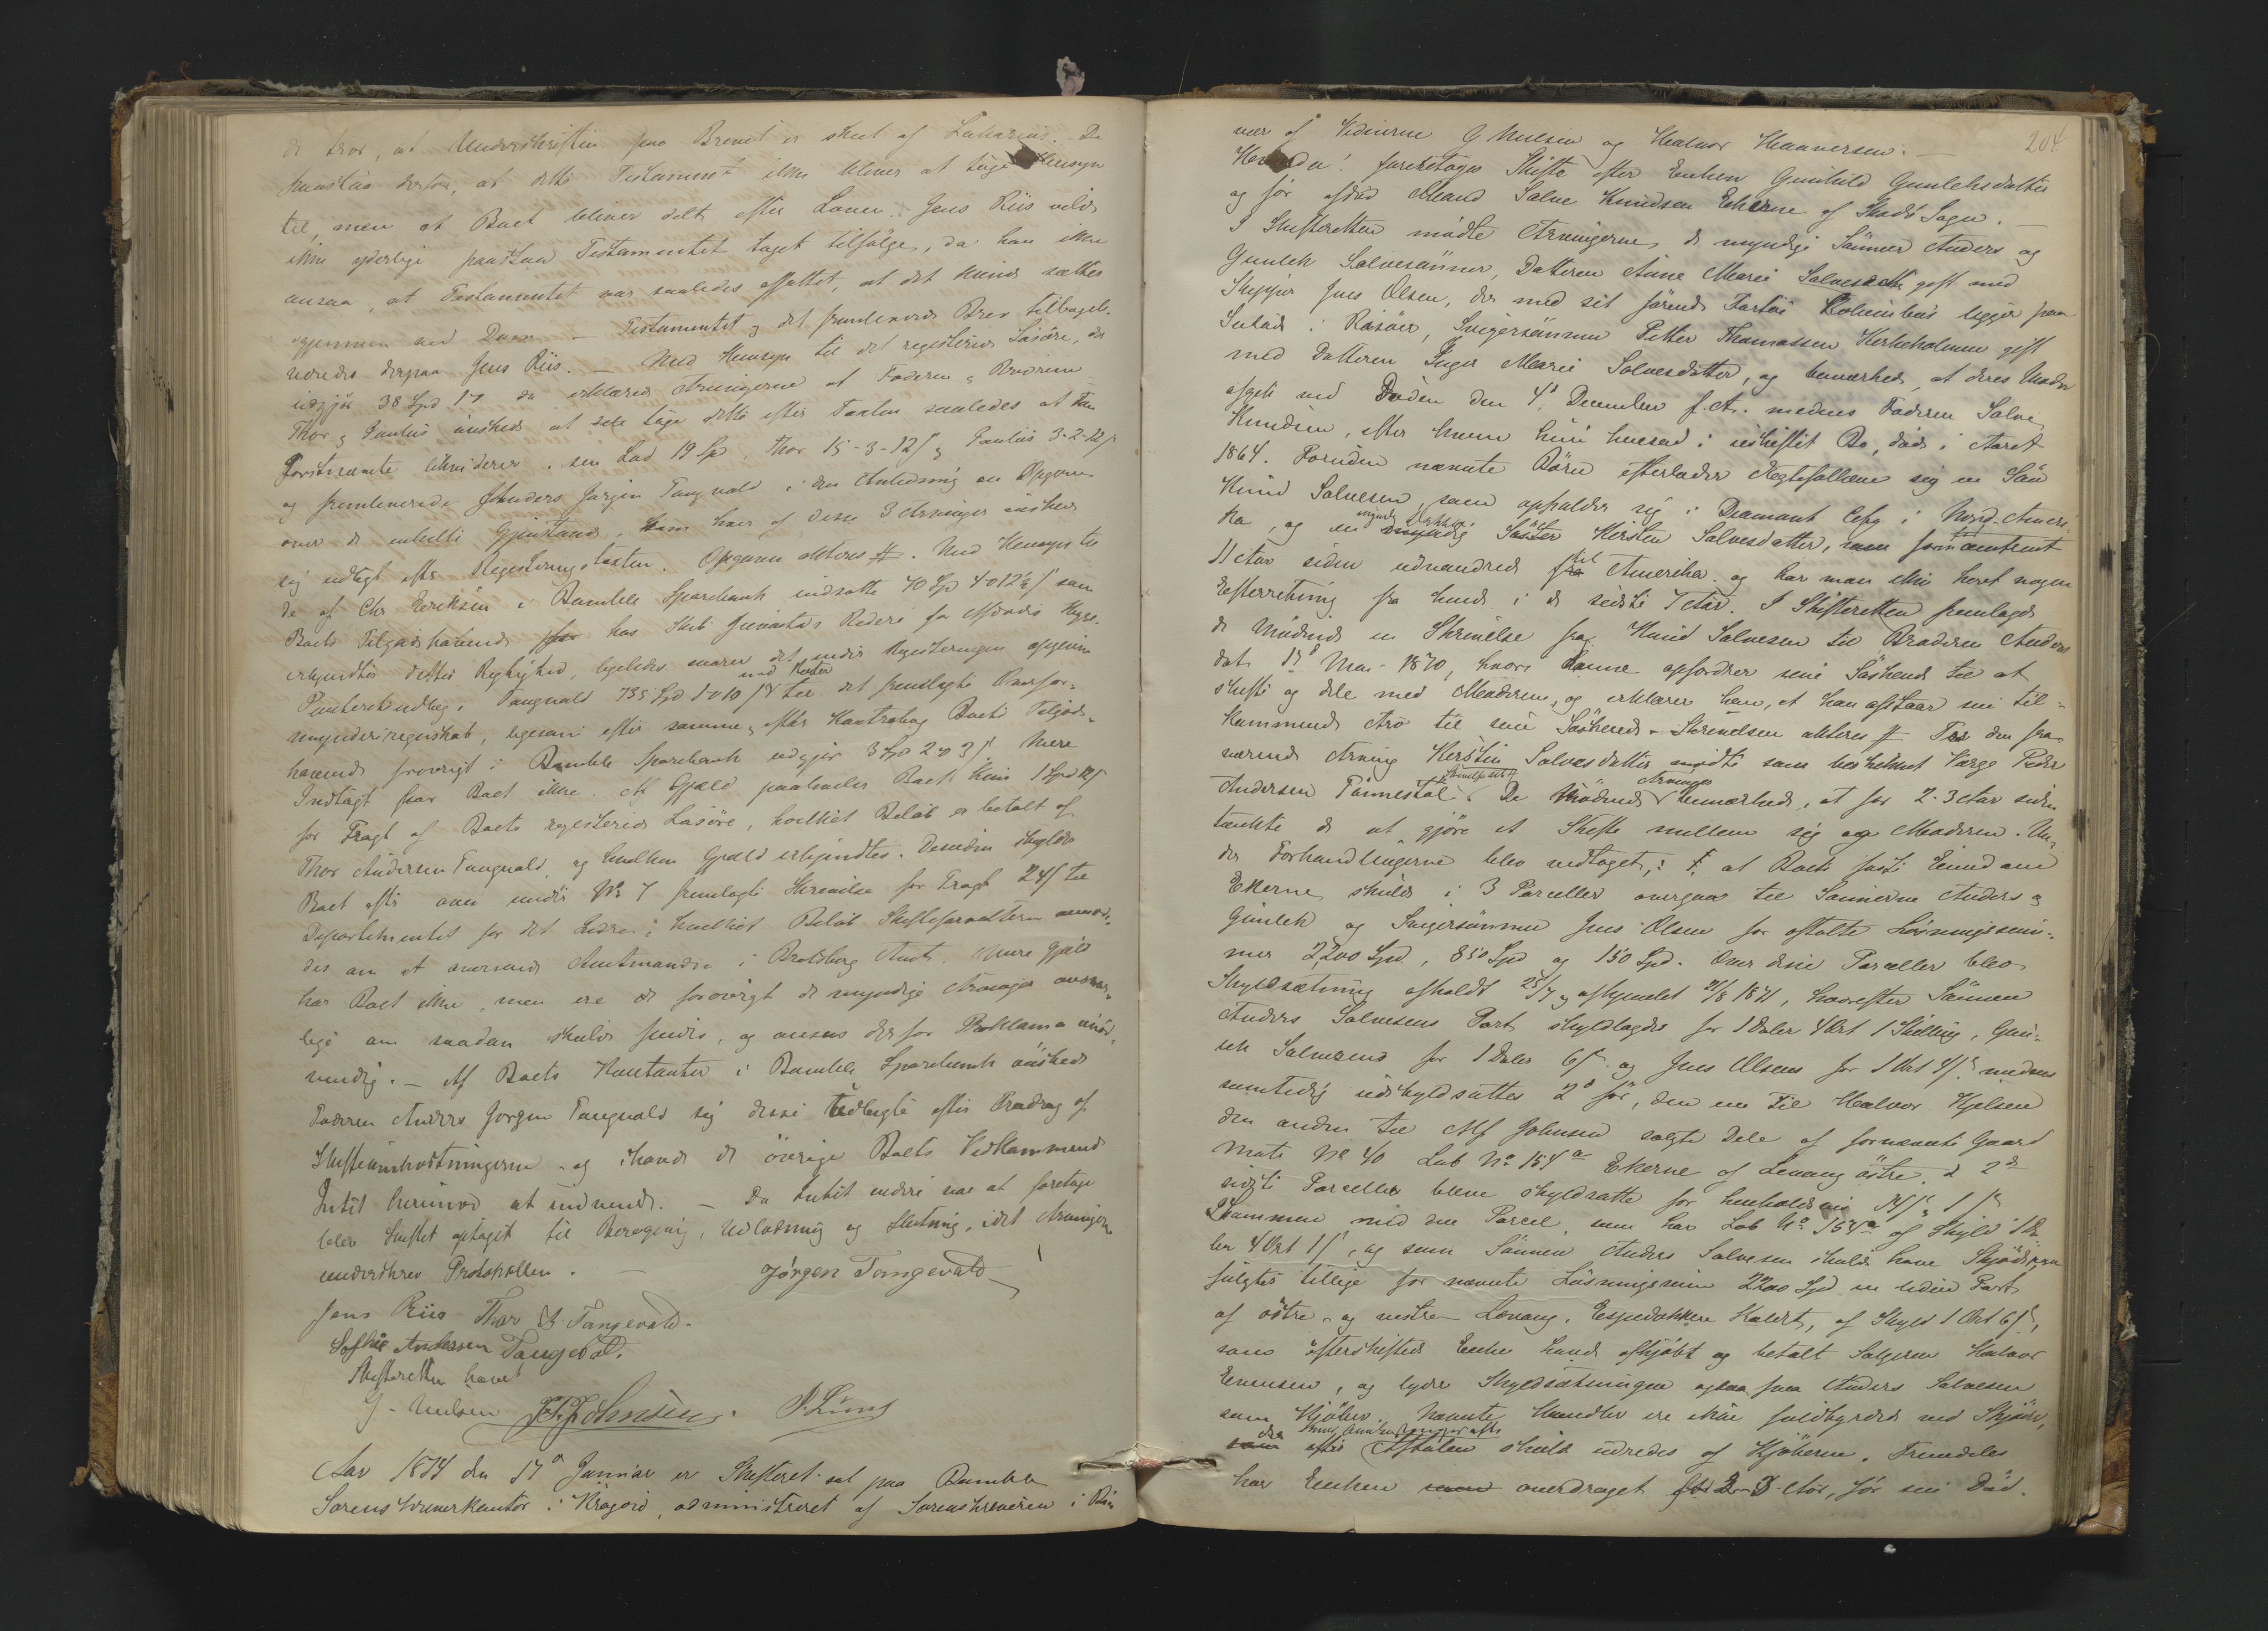 de tror, at Underskriften paa Brevet er skeet af Zakarias. De
paastaa derfor, at dette Testament ikke bliver at tage Hensyn
til, men at Boet bliver delt efter Loven. Jens Riis vilde
ikke yderlige paastaa Testamentet taget tilfølge, da han ikke
ansaa, at Testamentet var saaledes affattet, at det kunde sættes
igjennem ved Dom. – Testamentet og det fremleverede Brev tilbagele-
veredes derpaa Jens Riis. – Med Hensyn til det registerede Løsøre, der
udgjør 38 Spd 17 da erklærede Arvingerne at Faderen og Brødrene
Thor og Paulus ønskede at dele tage dette efter Taxten saaledes at Fan
Førstnævnte likviderer i sin Lod 19 Sp, Thor 15-3-12 ß og Paulus 3-2-12 ß
og fremleverede Anders Jørgen Tangvald i den Anledning en Opgave
over de enkelte Gjenstande, som hver af disse 3 Arvinger ønskede
sig udlagt efter Registeringstaxten. Opgaven akteres #. Med Hensyn til
de af Chr Eriksen i Bamble Sparebank indsatte 40 Sp 4 o 12½ ß som
Boets Tilgodehavende hos Skib Rederi for Afdødes Hyre
erkjendtes dettes Rigtighed, ligeledes svarer det under Registeringen opgivne
Panteretudlæg i Tangvald 735 Spd 1 o 10 ß med Renter til det fremlagte Overfor-
mynderiregnskab, ligesom efter samme, efter Kontrabog Boets Tilgode-
havende forøvrigt i Bamble Sparebank udgjør 3 Spd 2 o 3 ß Mere
Indtægt har Boet ikke. Af Gjæld paahviler Boet kun 1 Spd 12 ß
for Fragt af Boets registerede Løsøre, hvilket Beløb er betalt af
Thor Andersen Tangvald, og hvilken Gjæld erkjendtes. Desuden skylder
Boet efter oven under No 7 fremlagte Skrivelse for Fragt 24 ß til
Departementet for det Indre, hvilket Beløb Skifteforvalteren anmode-
des om at oversende Amtmanden i Bratsberg Amt. Mere Gjæld
har Boet ikke, men ere de forøvrigt de myndige Arvinger ansvar-
lige om saadan skulde findes, og ansees derfor Proklama unød-
vendig. – Af Boets Kontanter i Bamble Sparebank ønskede
Faderen Anders Jørgen Tangvald sig disse udlagte efter Fradrag af
Skifteomkostningerne og havde de øvrige Boets Vedkommende
Intet herimod at indvende. – Da Intet videre var at foretage
blev Skiftet optaget til Beregning, Udlodning og Slutning, idet Arvingerne
underskrev Protokollen. –
Jørgen Tangevald
Jens Riis Thor A. Tangevald.
Sofhie Andersen Tangevald.
Skifteretten hævet
G. Nielsen J. Johnsen. P. Lund
Aar 1874 den 17de Januar er Skifteret sat paa Bamble
Sorenskriverkontor i Kragerø, administreret af Sorenskriveren i Over-
204
vær af Vidnerne G Nielsen og Halvor Haavorsen. –
Hvorda! foretoges Skifte efter Enken Gunhild Gunleksdatter
og før afdød Mand Salve Knudsen Ekerne af Skaatø Sogn. –
I Skifteretten mødte Arvingerne, de myndige Sønner Anders og
Gunlek Salvesønner, Datteren Anne Marie Salvesdatter gift med
Skipper Jens Olsen, der med sit førende Fartøi Kolumbus ligger paa
Indløb i Risøer, Svigersønnen Petter Thomassen Kirkeholmen gift
med Datteren Inger Marie Salvesdatter, og bemærkede, at deres Moder
afgik ved Døden den 4de December f. A. medens Faderen Salve
Knudsen, efter hvem hun hensad i uskiftet Bo, døde i Aaret
1864. Foruden nævnte Børn efterlader Ægtefolkene sig en Søn
Knud Salvesen, som opholder sig i Diamant City i Nord-Ameri-
ka, og en myndig Datter Søster Kirsten Salvesdatter, som for omtrent
11 Aar siden udvandrede til Amerika. og har man ikke hørt nogen
Efterretning fra hende i de sidste 7 Aar. I Skifteretten fremlagde
de Mødende en Skrivelse fra Knud Salvesen til Broderen Anders
dat. 17de Mai 1870, hvori denne opfordrer sine Søskende til at
skifte og dele med Moderen, og erklærer han, at han afstaar sin til-
kommende Arv til sine Søskende. Skrivelsen akteres # For den fra-
værende Arving Kirstin Salvesdatter mødte som beskikket Værge Peder
Andersen Tønnestøl. De mødende Arvinger bemærkede, at for 2-3 Aar siden
tænkte de at gjøre et Skifte mellem sig og Moderen. Un-
der Forhandlingerne blev vedtaget, at Boets faste Eiendom
Ekerne skulde i 3 Parceller overgaa til Sønnerne Anders og
Gunlek og Svigersønnen Jens Olsen for aftalte Løsningssum-
mer 2,200 Spd, 850 Spd og 150 Spd. Over disse Parceller blev
Skyldsætning afholdt 25/7 og afhjemlet 21/8 1871, hvorefter Sønnen
Anders Salvesens Part skyldlagdes for 1 Daler 4 Ort 1 Skilling, Gun-
lek Salvesens for 1 Daler 6 ß og Jens Olsens for 1 Ort 4 ß. medens
samtidig udskyldsattes 2de før, den ene til Halvor Kjelsen
den anden til Alf Johnsen solgte Dele af fornævnte Gaard
Matr No 40 Løb No 154a Ekerne af Levang østre. d 2de
sidste Parceller bleve skyldsatte for henholdsvis 1 ß
Sammen med den Parcel, som har Løb No 154a af Skyld 1 Da-
ler 4 Ort 1 ß, og som Sønnen Anders Salvesen skulde have Skjøde paa
fulgtes tillige for nævnte Løsningssum 2200 Spd en liden Part
af østre og vestre Levang, Espedokken kaldet, af Skyld 1 Ort 6 ß,
som afterskiftede Enke havde afkjøbt og betalt Sælgeren Halvor
Evensen, og lyder Skyldsætningen ogsaa paa Anders Salvesen
som Kjøber. Nævnte Handler ere ikke fuldbyrdede ved Skjøder,
efter Aftalen skulde udredes af Kjøberne. Fremdeles
har Enken overdraget Aar, før sin Død.